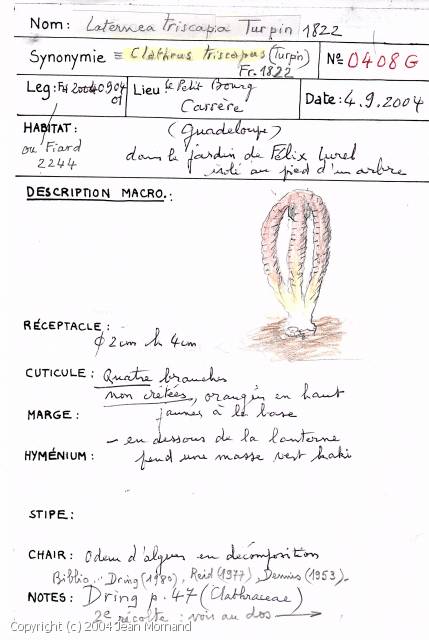 Nom: Laternea triscapa Turpin 1822
Synonymie = Clathrus triscapus (Turpin) Fr. 1822
No 0408G
Leg: 20040904 01
Lieu le Petit Bourg Carrère
Date: 4.9.2004
HABITAT: (Guadeloupe)
ou Fiard 2244
dans le jardin de Félix Lurel
isolé au pied d'un arbre
DESCRIPTION MACRO.:
RÉCEPTACLE:
φ 2cm h 4cm
CUTICULE: Quatre branches
non crêtées, orangées en haut
MARGE: jaunes à la base
– en dessous de la lanterne
HYMÉNIUM: pend une masse vert kaki
STIPE:
CHAIR: Odeur d'algues en décomposition
Biblio.. Dring (1980), Reid (1977), Dennis (1953).
NOTES: Dring p. 47 (Clathraceae)
2e récolte: voir au dos →
Copyright (c) 2004 Jean Mornand